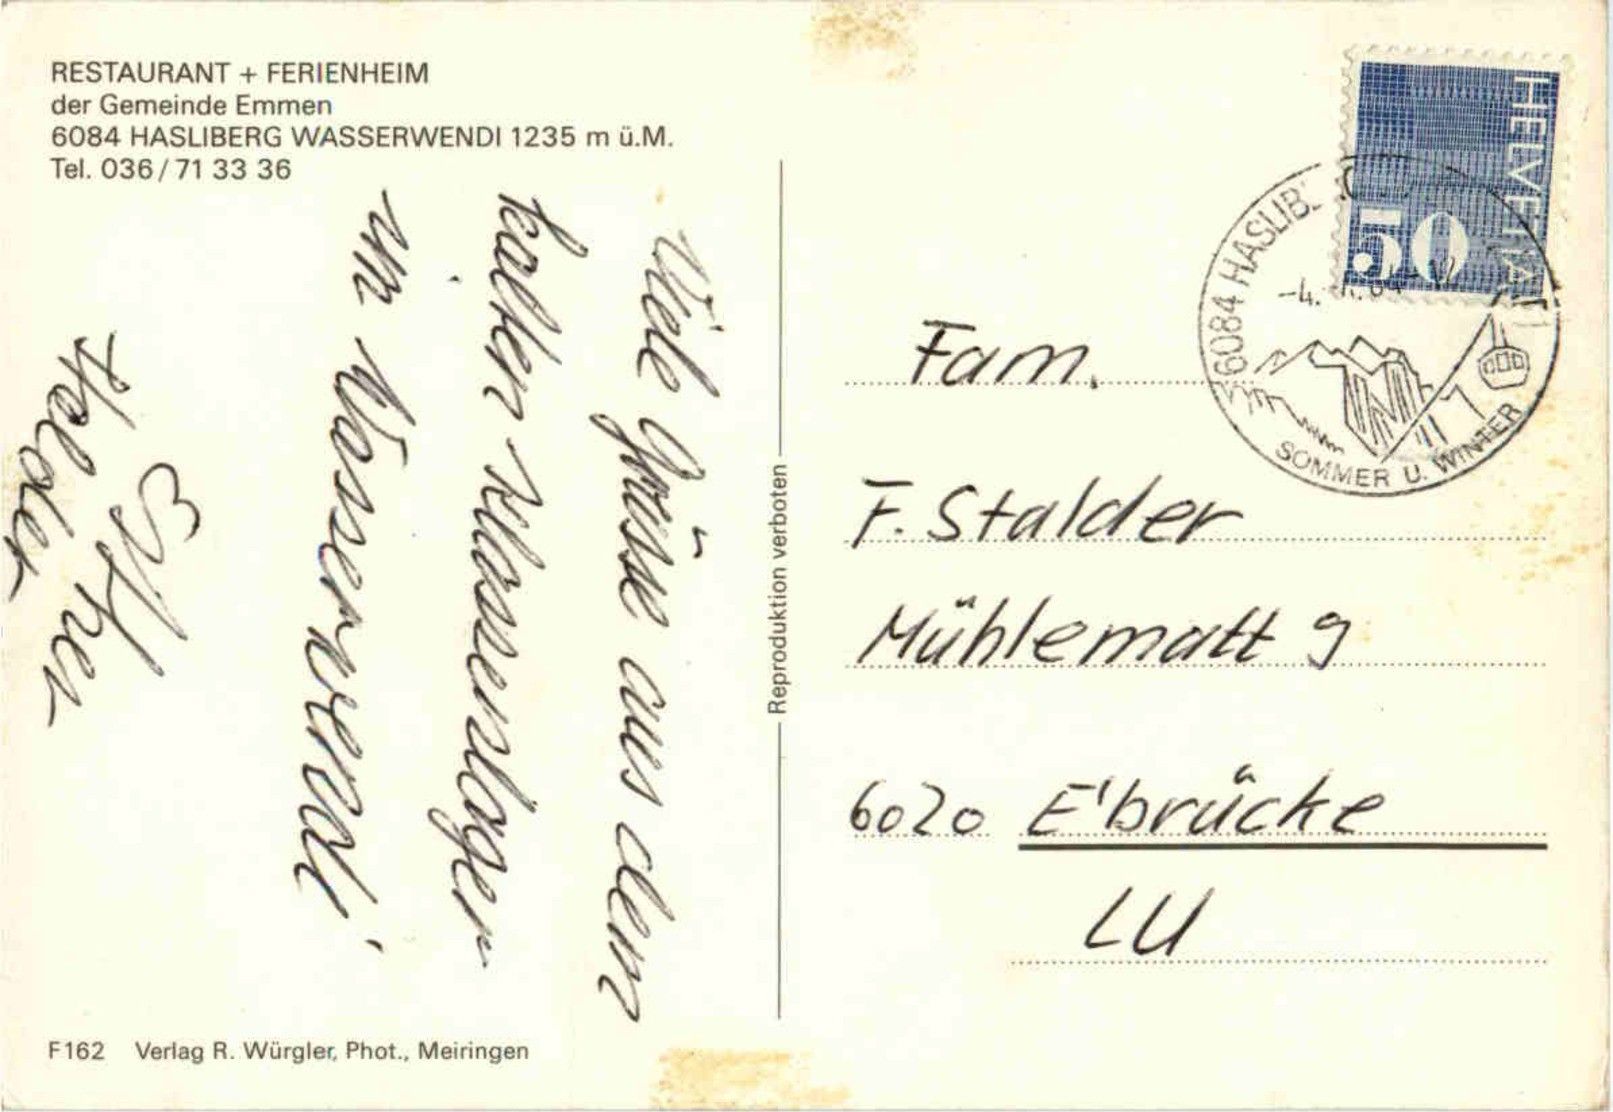 RESTAURANT + FERIENHEIM
der Gemeinde Emmen
6084 HASLIBERG WASSERWENDI 1235 m ü.M.
Tel. 036/71 33 36
Viele Grüsse aus dem
kalten Klassenlager
in Wasserwendi
Esther
Holder
F162 Verlag R. Würgler, Phot., Meiringen
Reproduktion verboten
HELVETIA
50
6084 HASLIB
-4.
SOMMER U. WINTER
Fam.
F. Stalder
Mühlematt 9
6020 E'brücke
LU